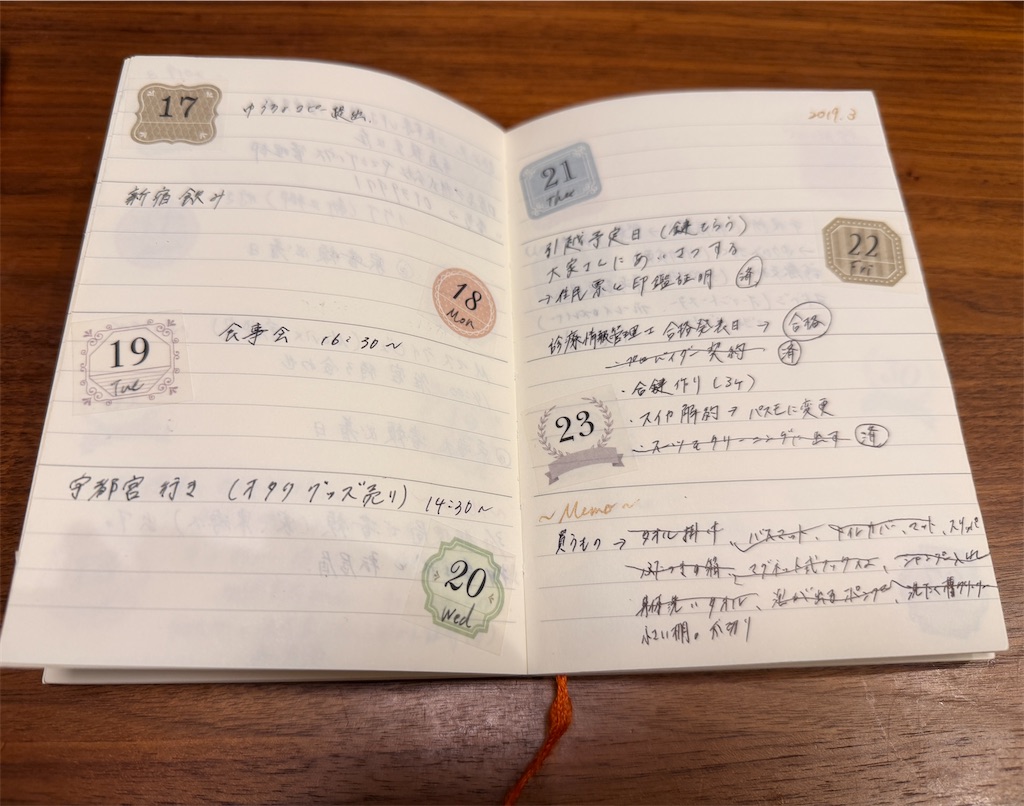 17
ゆうちょコピー提出、
新宿 飲み
18
Mon
19
Tue
食事会 16:30~
宇都宮 行き (オタクグッズ売り) 14:30~
20
Wed
2019.3
21
Ther
引越予定日 (鍵もらう)
大家さんにあいさつする
→ 住民票と印鑑証明 済
22
Fri
診療情報管理士 合格発表日 → 合格
・プロバイダー契約 済
・合鍵作り(コ)
23
・スイカ解約→パスモに変更
・スーツをクリーニングに出す 済
~Memo~
買うもの → タオル掛け、バスマット、トイレカバー、マット、スリッパ
マグネット式フックイ、シャンプー入れ
身体洗いタオル、泡が出るポンプ、洗たく槽クリーナー
小さい棚。爪切り